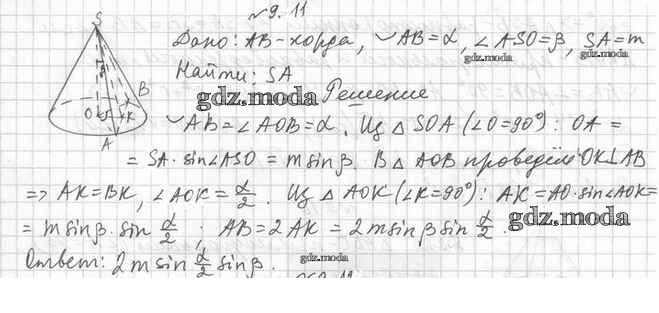 №9.11
Дано: AB-хорда, ◡AB=α, ∠ASO=β, SA=m
gdz.moda
gdz.moda
Найти: SA
gdz.moda Решение
◡AB=∠AOB=α. Из △SOA (∠O=90°): OA=
=SA·sin∠ASO=m sinβ. В △AOB проведём OK⊥AB
=> AK=BK, ∠AOK=α/2. Из △AOK (∠K=90°): AK=AO·sin∠AOK=
=m sinβ·sin α/2; AB=2AK=2m sinβ sin α/2.
gdz.moda
gdz.moda
Ответ: 2m sin α/2 sinβ.
gdz.moda
S
O
B
K
A